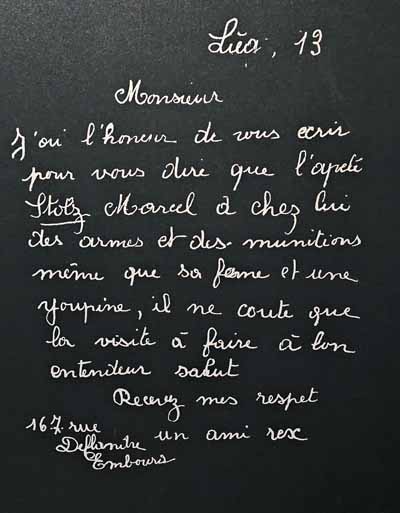 13
Monsieur
J'ai l'honeur de vous ecrir
pour vous dire que l'apelé
Stolz Marcel a chez lui
des armes et des munitions
même que sa fame et une
youpine, il ne coute que
la visite à faire à bon
entendeur salut
Recevez mes respet
un ami rex
167 rue
Deflandre
Embours